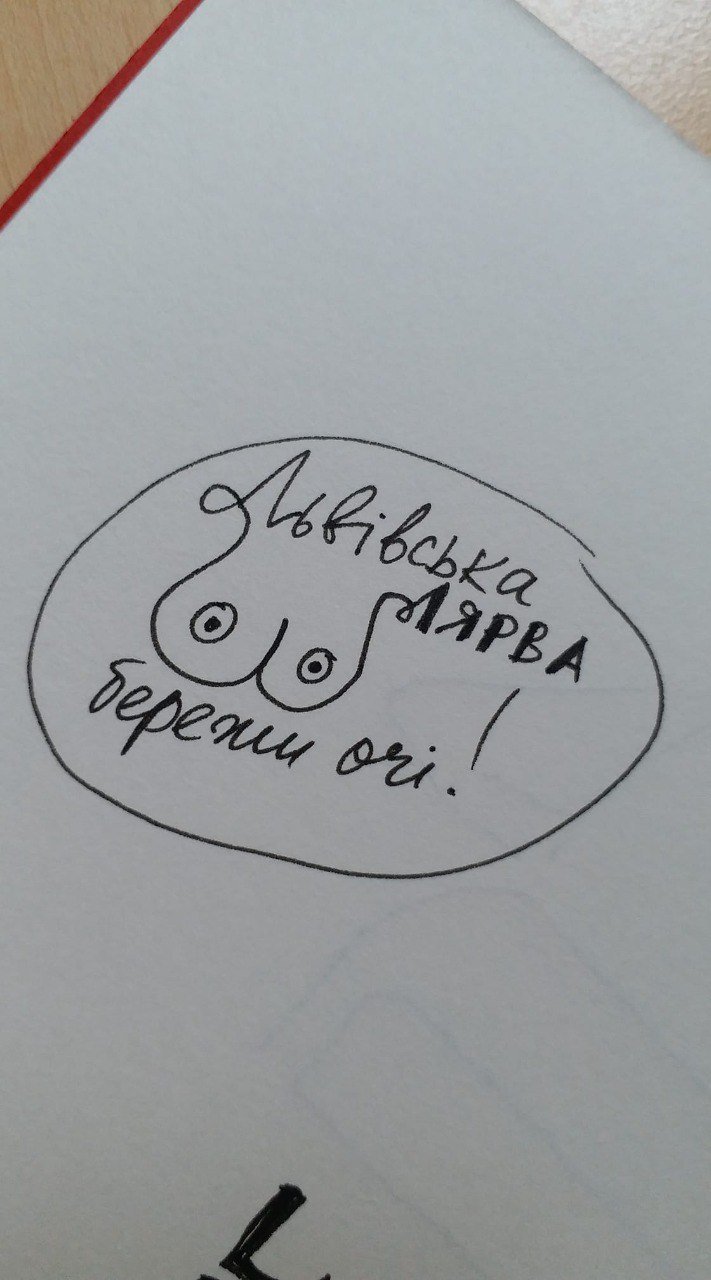 Львівська
ЛЯРВА
бережи очі!